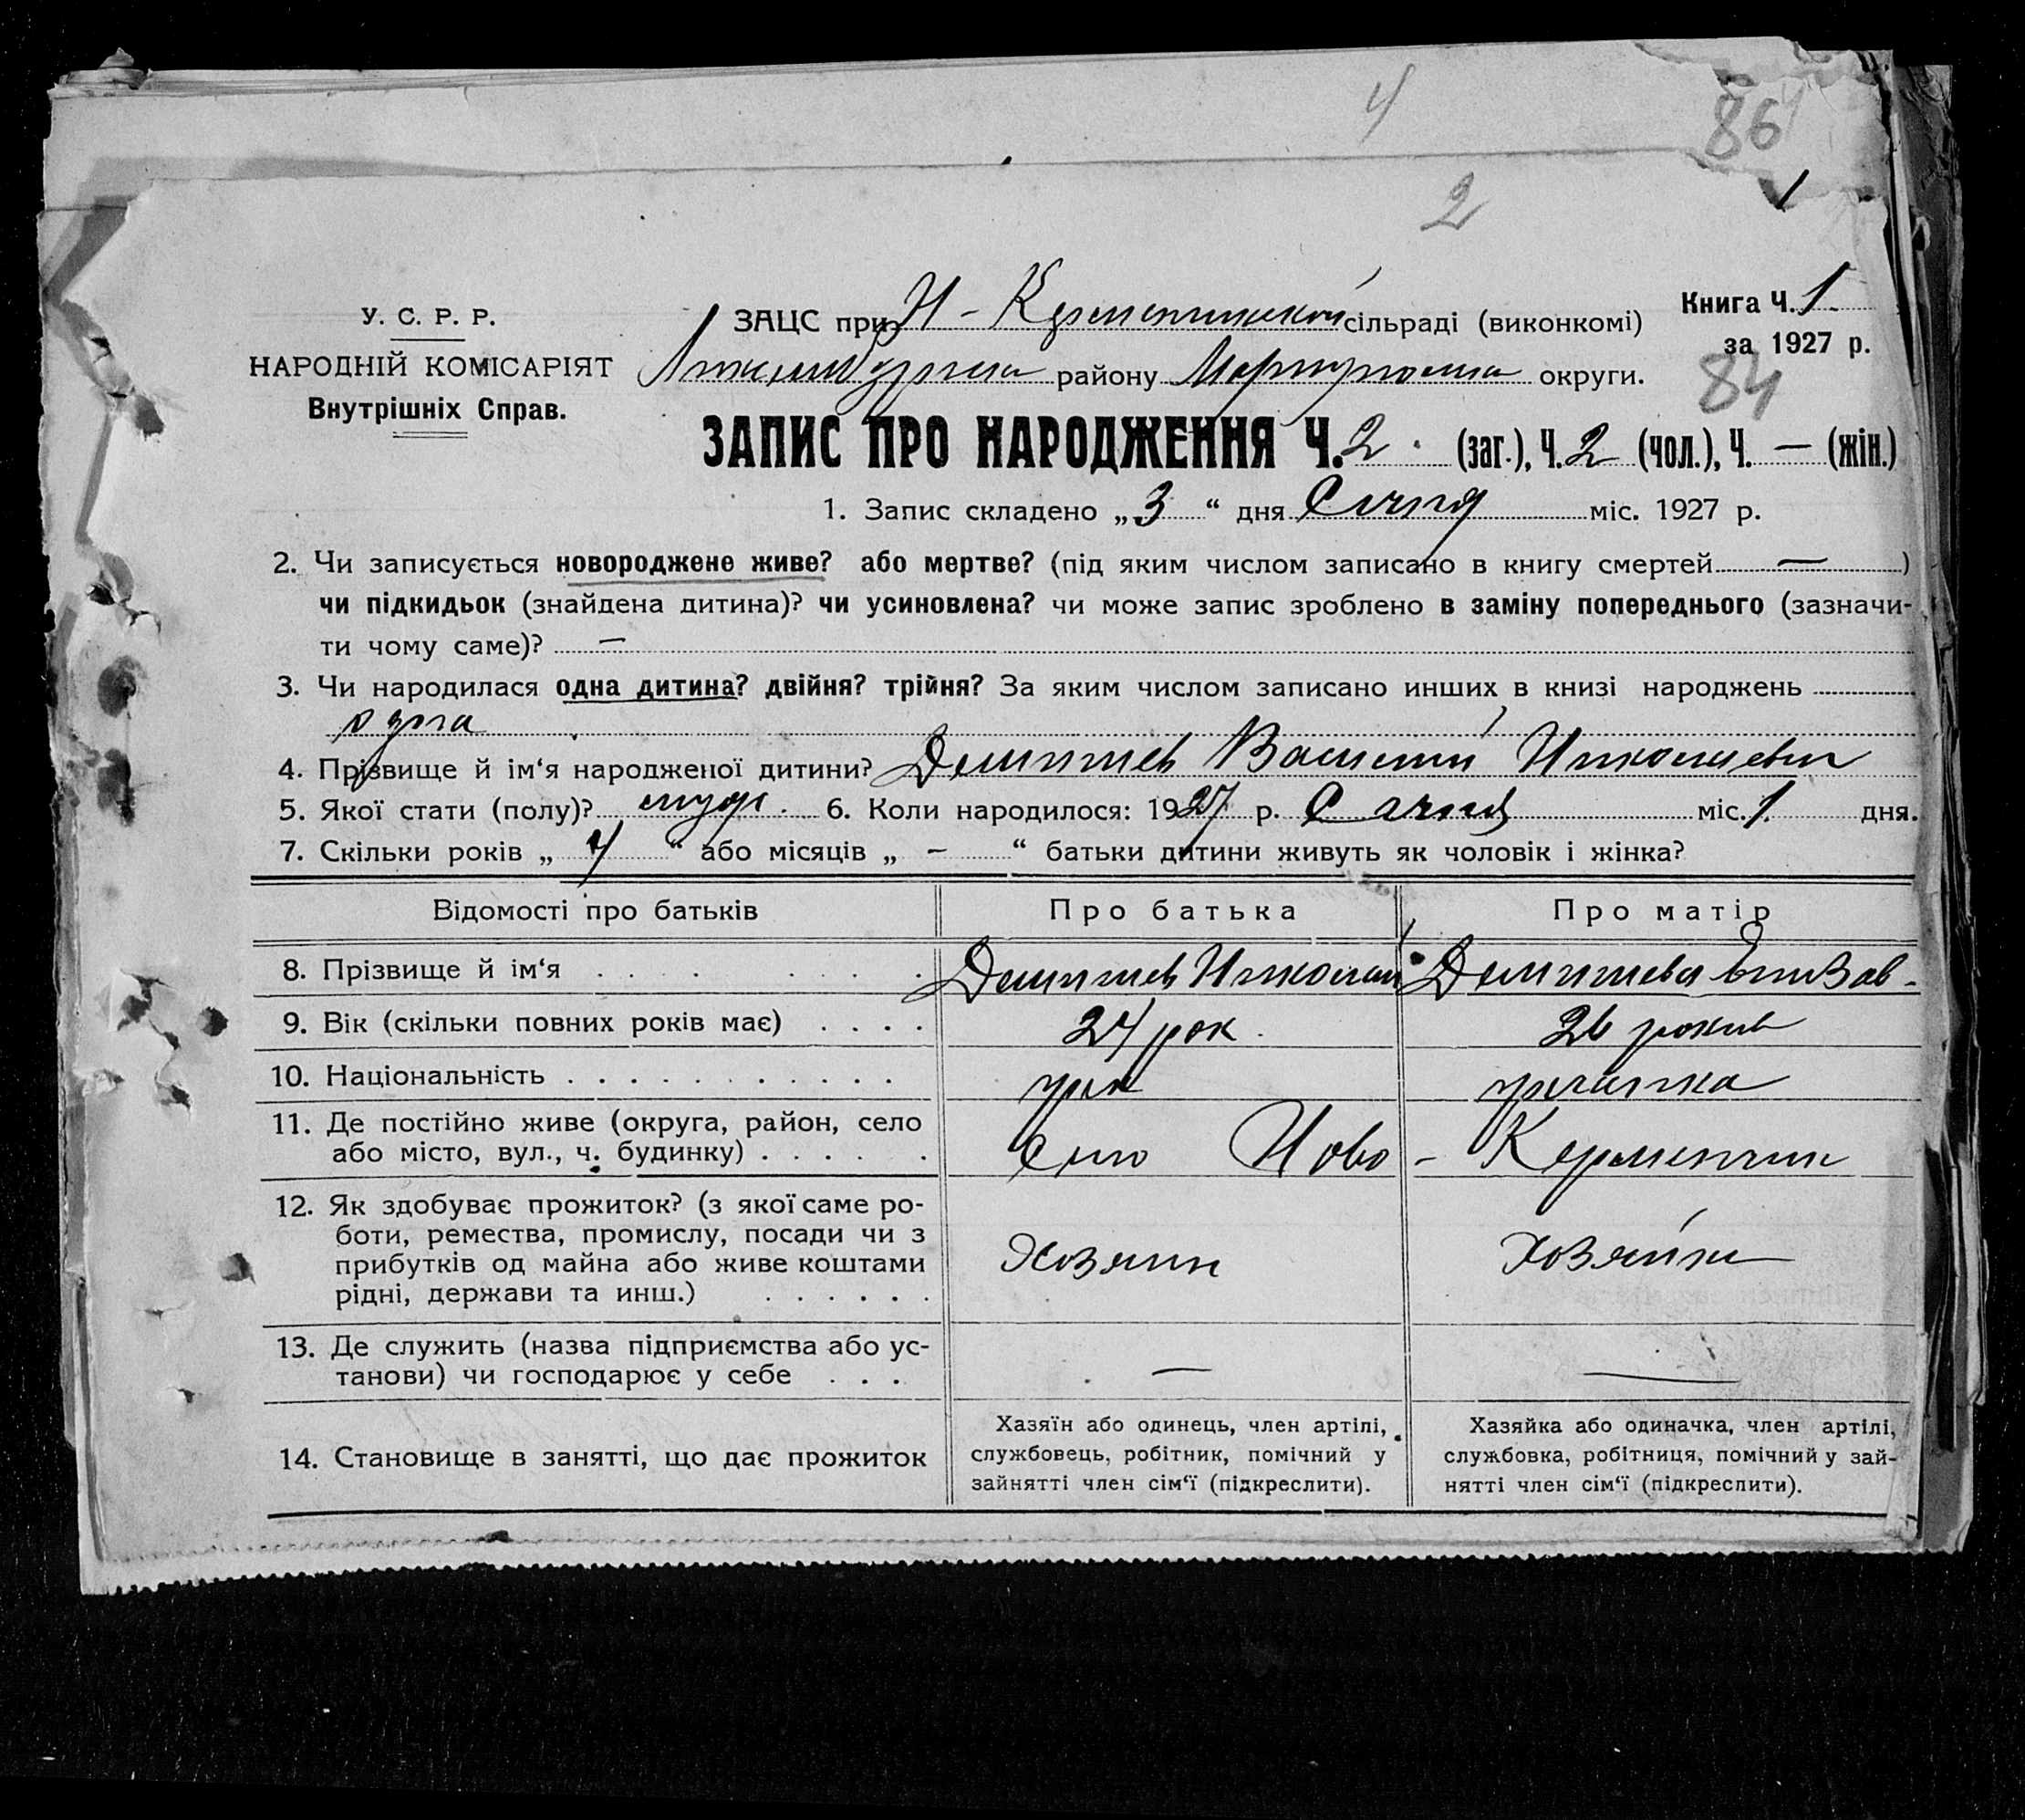 4
86
1
2
У. С. Р. Р.
НАРОДНІЙ КОМІСАРІЯТ
Внутрішніх Справ.
ЗАЦС при Н-Керменчикской сільраді (виконкомі)
району Мариупольск округи.
Книга Ч. 1
за 1927 р.
84
ЗАПИС ПРО НАРОДЖЕННЯ Ч. 2. (заг.), Ч. 2 (чол.), Ч. — (жін.)
1. Запис складено „ 3 “ дня Січня міс. 1927 р.
2. Чи записується новороджене живе? або мертве? (під яким числом записано в книгу смертей — )
чи підкидьок (знайдена дитина)? чи усиновлена? чи може запис зроблено в заміну попереднього (зазначи-
ти чому саме)? —
3. Чи народилася одна дитина? двійня? трійня? За яким числом записано инших в книзі народжень
одна
4. Прізвище й ім‘я народженої дитини? Василий Николаевич
5. Якої стати (полу)? муж. 6. Коли народилося: 1927 р. Січня міс. 1. дня.
7. Скільки років „ 4 “ або місяців „ - “ батьки дитини живуть як чоловік і жінка?
Відомості про батьків Про батька Про матір
8. Прізвище й ім‘я Николай Елизав.
9. Вік (скільки повних років має) 24 рок. 26 рокив
10. Національність грек гречанка
11. Де постійно живе (округа, район, село
або місто, вул., ч. будинку) село Ново - Керменчик
12. Як здобуває прожиток? (з якої саме ро-
боти, ремества, промислу, посади чи з
прибутків од майна або живе коштами
рідні, держави та инш.) Хозяин Хозяйка
13. Де служить (назва підприємства або ус-
танови) чи господарює у себе — —
14. Становище в занятті, що дає прожиток
Хазяїн або одинець, член артілі,
службовець, робітник, помічний у
зайнятті член сім‘ї (підкреслити).
Хазяйка або одиначка, член артілі,
службовка, робітниця, помічний у зай-
нятті член сім‘ї (підкреслити).